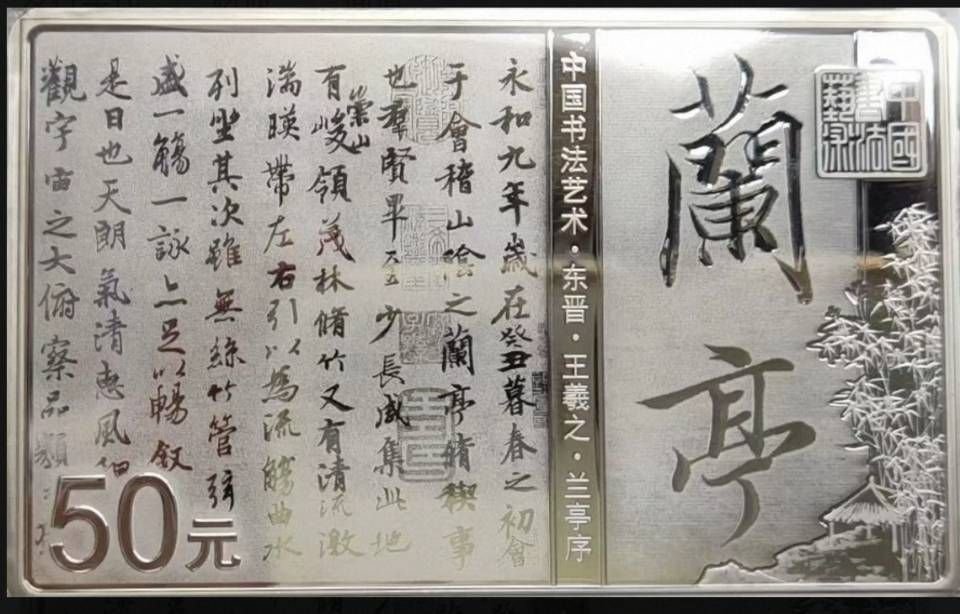 中國書法藝術
蘭亭
中国书法艺术·东晋·王羲之·兰亭序
永和九年歲在癸丑暮春之初會
于會稽山陰之蘭亭脩稧事
也羣賢畢至少長咸集此地
有崇山峻領茂林脩竹又有清流激
湍暎帶左右引以為流觴曲水
列坐其次雖無絲竹管弦
盛一觴一詠亦足以暢敘
是日也天朗氣清惠風
觀宇宙之大俯察品類
50元